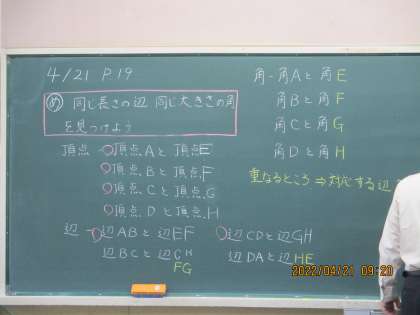 4/21 P.19
め 同じ長さの辺 同じ大きさの角
を見つけよう
頂点 頂点Aと頂点E
頂点Bと頂点F
頂点Cと頂点G
頂点Dと頂点H
辺 辺ABと辺EF
辺BCと辺GH
FG
辺CDと辺GH
辺DAと辺HE
角-角Aと角E
角Bと角F
角Cと角G
角Dと角H
重なるところ⇒対応する辺
2022/04/21 09:20